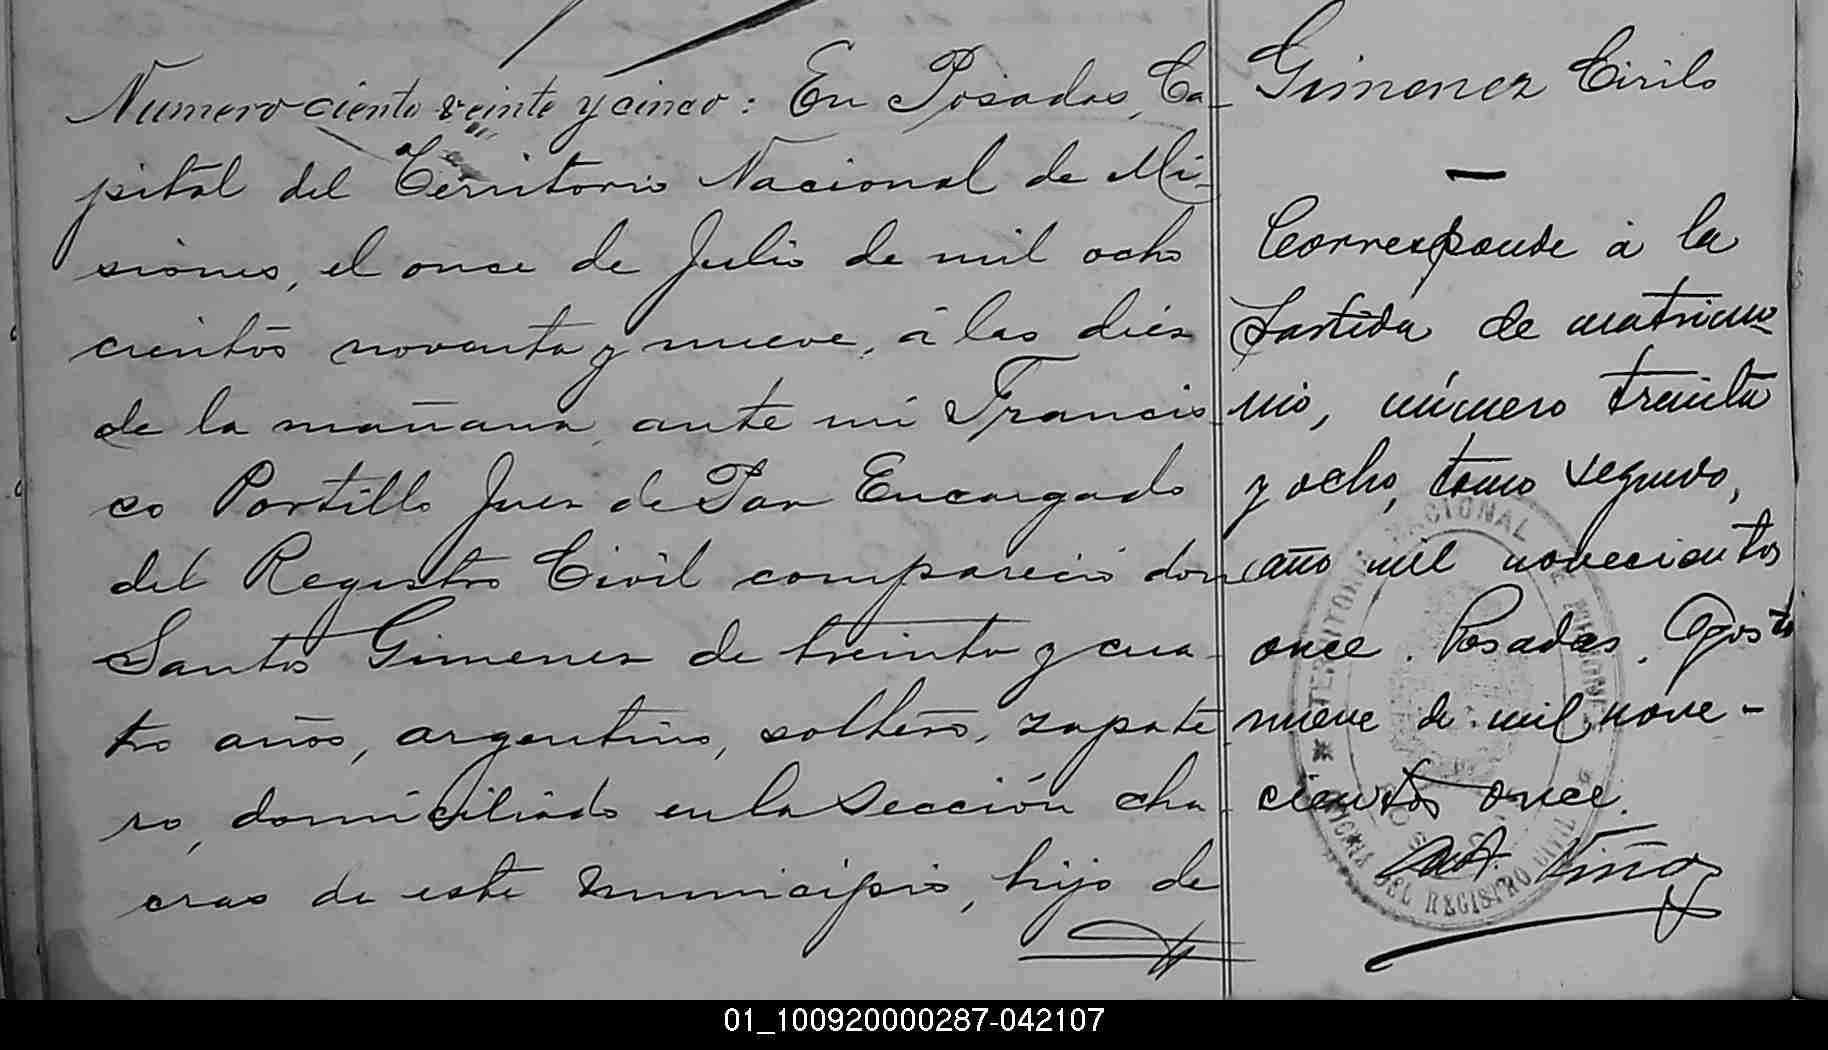 Numero ciento veinte y cinco: En Posadas, Ca-
pital del Territorio Nacional de Mi-
siones, el once de Julio de mil ocho
cientos noventa y nueve, á las diez
de la mañana, ante mi Francis-
co Portillo Juez de Paz Encargado
del Registro Civil compareció don
Santos Gimenez de treinta y cua-
tro años, argentino, soltero, zapate
ro, domiciliado en la Sección cha-
cras de este Municipio, hijo de
Gimenez Cirilo
Corresponde á la
Partida de matrimo-
nio, número treinta
y ocho, tomo segundo,
año mil novecientos
once. Posadas, Agosto
nueve de mil nove-
cientos once.
Viñas
TERRITORIO NACIONAL DE MISIONES
DEL REGISTRO CIVIL
01_100920000287-042107